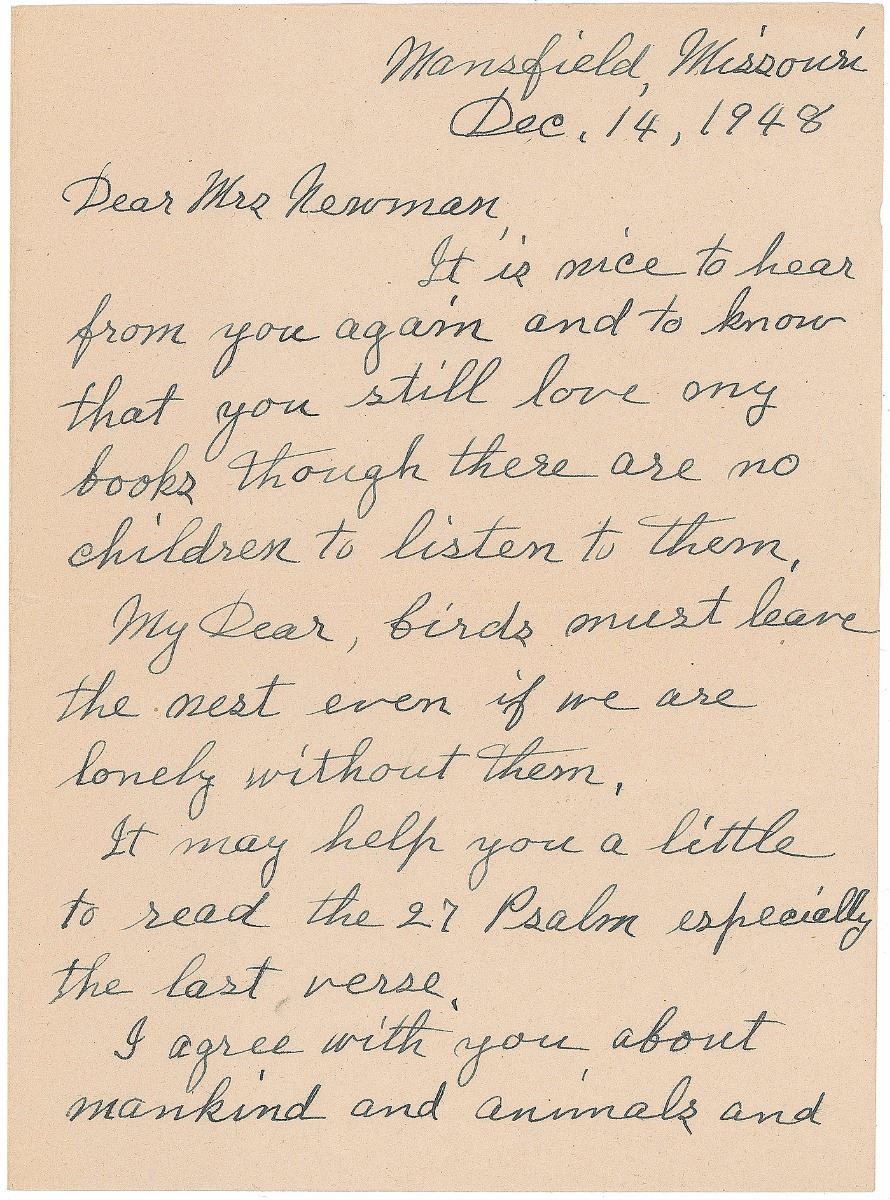 Mansfield, Missouri
Dec. 14, 1948
Dear Mrs Newman,
It is nice to hear
from you again and to know
that you still love my
books though there are no
children to listen to them.
My Dear, birds must leave
the nest even if we are
lonely without them.
It may help you a little
to read the 27 Psalm especially
the last verse.
I agree with you about
mankind and animals and